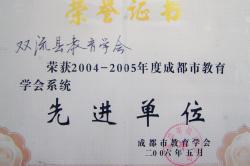 荣誉证书
双流县教育学会
荣获2004-2005年度成都市教育
学会系统
先进单位
成都市教育学会
二00六年五月